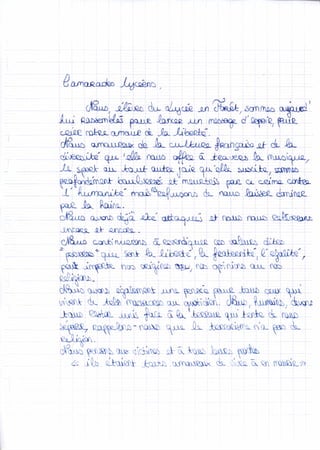 Camarades lycéens,
Nous, élèves du lycée en Forêt, sommes aujourd'
hui rassemblés pour lancer un message d'espoir, pour
crier notre amour de la liberté.
Nous amoureux de la culture française et de la
diversité qu'elle nous offre à travers la musique,
le sport ou tout autre joie qu'elle suscite, sommes
profondément bouleversés et meurtris par ce crime contre
l'humanité mais refusons de nous laisser dominer
par la haine.
Nous avons déjà été attaqués et nous nous relèverons
encore et encore.
Nous continuerons à revendiquer ces valeurs dites
"perverses" que sont la liberté, la fraternité, l'égalité,
peu importe nos origines, nos opinions ou nos
religions.
Nous avons également une pensée pour tous ceux qui
vivent de tels massacres au quotidien. Nous, humains, devons
tous rester unis face à la terreur qui tente de nous
séparer, rappelons-nous que le terrorisme n'a pas de
religion.
Nous pensons aux victimes et à tous leurs proches
« ils étaient tous amoureux de